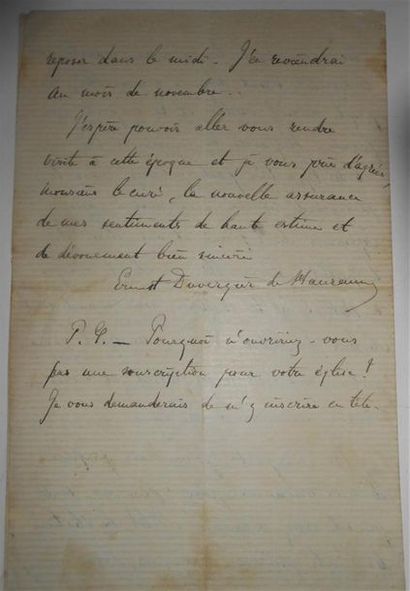 reposer dans le midi. J'en reviendrai
au mois de novembre..
J'espère pouvoir aller vous rendre
visite à cette époque et je vous prie d'agréer,
monsieur le curé, la nouvelle assurance
de mes sentiments de haute estime et
de dévouement bien sincère
Ernest Duvergier de Hauranne
P.S. — Pourquoi n'ouvririez-vous
pas une souscription pour votre église?
Je vous demanderais de m'y inscrire en tête.